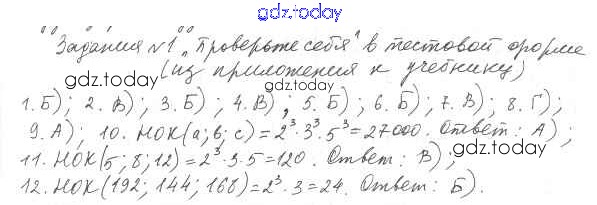 gdz.today
Задания №1 „Проверьте себя" в тестовой форме
gdz.today (из приложения к учебнику)
1. Б); 2. В); 3. Б); 4. В); 5. Б); 6. Б); 7. В); 8. Г);
gdz.today
9. А); 10. НОК(а; в; с) = 2³·3³·5³ = 27000. Ответ: А);
11. НОК(5; 8; 12) = 2³·3·5 = 120. Ответ: В); gdz.today
12. НОК(192; 144; 168) = 2³·3 = 24. Ответ: Б).